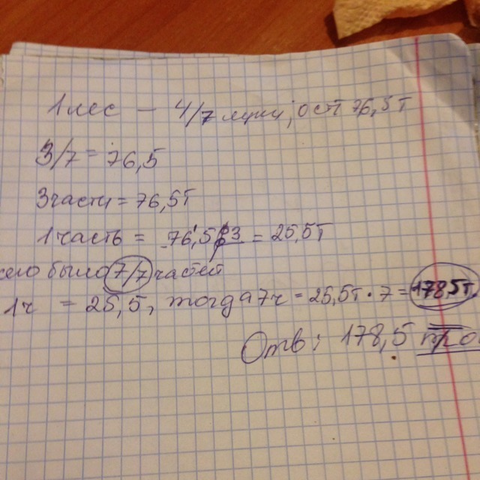 1 мес – 4/7 муки, ост 76,5т
3/7 = 76,5
3 части = 76,5т
1 часть = 76,5 : 3 = 25,5т
сего было 7/7 частей
1ч = 25,5, тогда 7ч = 25,5т · 7 = 178,5т.
Отв: 178,5